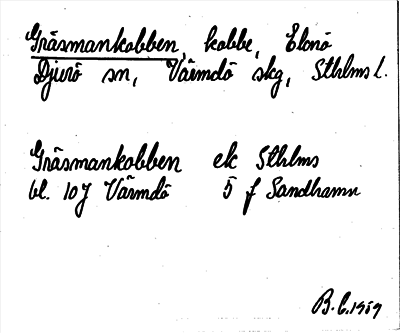 Gräsmankobben, kobbe, Elovö
Djurö sn, Värmdö skg, Sthlms l.
Gräsmankobben ek Sthlms
bl. 10J Värmdö 5 f Sandhamn
B.C. 1959